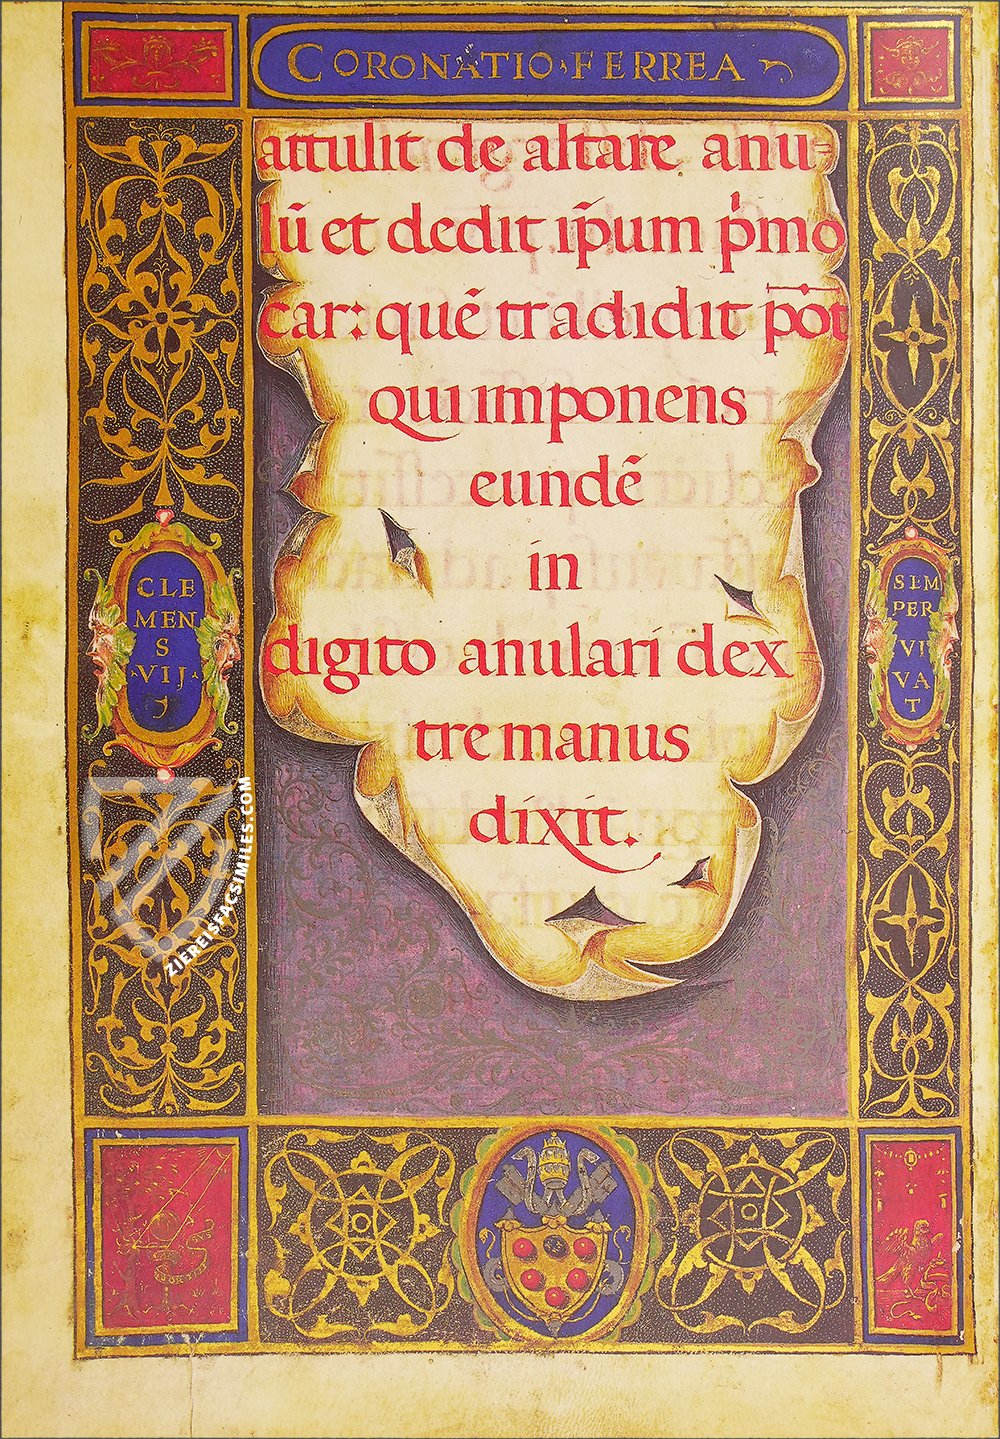 CORONATIO·FERREA
attulit de altare anu=
lū et dedit ip̄um p'mo
car: quē tradidit pōt
qui imponens
eundē
in
digito anulari dex=
tre manus
dixit.
CLE
MEN
S
·VIJ·
SEM
PER
VI
VA
T
ZIEREISFACSIMILES.COM